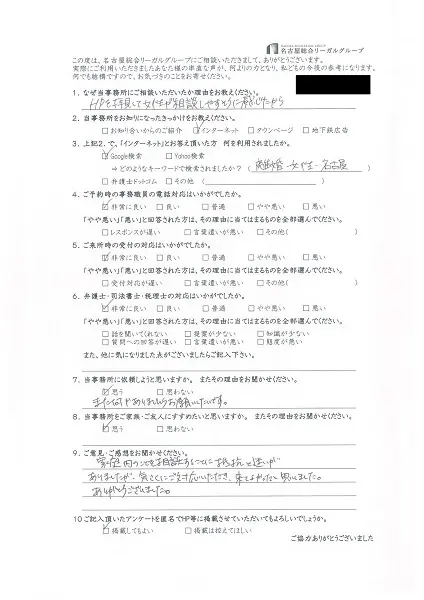 NAGOYA SOGO LEGAL GROUP
名古屋総合リーガルグループ
この度は、名古屋総合リーガルグループにご相談いただきまして、ありがとうございます。
実際にご利用いただきましたあなた様の率直な声が、何よりの力となり、私どもの今後の参考になります。
何でも結構ですので、お気づきのことをお寄せください。
1．なぜ当事務所にご相談いただいたか理由をお教えください。
HPを拝見して女性が相談しやすそうに感じたから
2．当事務所をお知りになったきっかけをお教えください。
□お知り合いからのご紹介 ☑インターネット □タウンページ □地下鉄広告
3．上記2．で、「インターネット」とお答え頂いた方 何を利用されましたか。
☑Google検索 □Yahoo検索
⇒どのようなキーワードで検索されましたか？（ 離婚 女性 名古屋 ）
□弁護士ドットコム □その他（ ）
4．ご予約時の事務職員の電話対応はいかがでしたか。
☑非常に良い □良い □普通 □やや悪い □悪い
「やや悪い」「悪い」と回答された方は、その理由に当てはまるものを全部選んでください。
□レスポンスが遅い □言葉遣いが悪い □その他（ ）
5．ご来所時の受付の対応はいかがでしたか。
☑非常に良い □良い □普通 □やや悪い □悪い
「やや悪い」「悪い」と回答された方は、その理由に当てはまるものを全部選んでください。
□受付対応が遅い □言葉遣いが悪い □その他（ ）
6．弁護士・司法書士・税理士の対応はいかがでしたか。
☑非常に良い □良い □普通 □やや悪い □悪い
「やや悪い」「悪い」と回答された方は、その理由に当てはまるものを全部選んでください。
□話を聞いてくれない □提案が少ない □知識が少ない
□質問への回答が遅い □言葉遣いが悪い □態度が悪い
また、他に気になりました点がございましたらご記入下さい。
7．当事務所に依頼しようと思いますか。 またその理由をお聞かせください。
☑思う □思わない
また何かありましたらお願いしたいです。
8．当事務所をご家族・ご友人にすすめたいと思いますか。 またその理由をお聞かせください。
☑思う □思わない
9．ご意見・ご感想をお聞かせください。
家庭内のことを相談することに抵抗と迷いが
ありましたが、気さくにご対応いただき、来てよかったと思いました。
ありがとうございました。
10 ご記入頂いたアンケートを匿名でHP等に掲載させていただいてもよろしいでしょうか。
☑掲載してもよい □掲載は控えてほしい
ご協力ありがとうございました